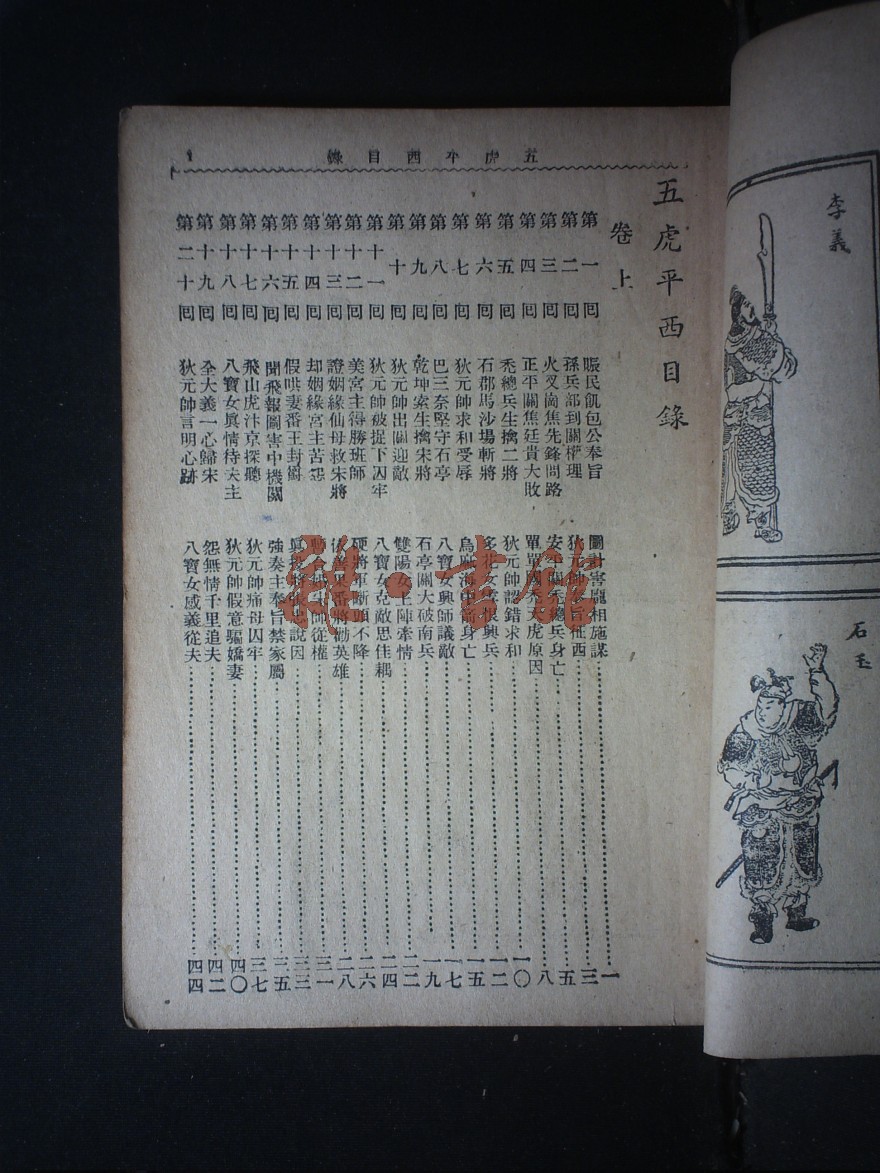 五虎平西目錄
1
五虎平西目錄
卷上
第一囘 賑民飢包公奉旨 圖計害龐相施謀 一
第二囘 孫兵部到關權理 狄元帥奉旨征西 三
第三囘 火叉崗焦先鋒問路 安平關禿總兵身亡 五
第四囘 正平關焦廷貴大敗 單單國禿天虎原因 八
第五囘 禿總兵生擒二將 狄元帥認錯求和 一〇
第六囘 石郡馬沙場斬將 多花女懷恨興兵 一二
第七囘 狄元帥求和受辱 烏麻海中箭身亡 一五
第八囘 巴三奈堅守石亭 八寶女興師議敵 一七
第九囘 乾坤索生擒宋將 石亭關大破南兵 一九
第十囘 狄元帥出關迎敵 雙陽女上陣牽情 二二
第十一囘 狄元帥被捉下囚牢 八寶女克敵思佳耦 二四
第十二囘 美宮主得勝班師 硬將軍斷頭不降 二六
第十三囘 證姻緣仙母救宋將 番將勸英雄 二八
第十四囘 却姻緣宮主苦怨 師從權 三一
第十五囘 假哄妻番王封爵 眞 說因 三三
第十六囘 聞飛報圖害中機關 強奏主奉旨禁家屬 三五
第十七囘 飛山虎汴京探聽 狄元帥痛母囚牢 三七
第十八囘 八寶女眞情待夫主 狄元帥假意騙嬌妻 四〇
第十九囘 全大義一心歸宋 怨無情千里追夫 四二
第二十囘 狄元帥言明心跡 八寶女感義從夫 四四
李義
石玉
雜·書館